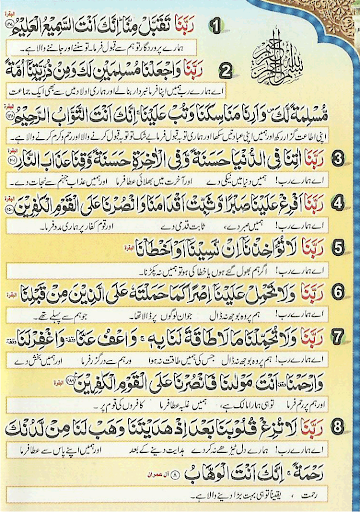 1 رَبَّنَا تَقَبَّلْ مِنَّا إِنَّكَ أَنْتَ السَّمِيعُ الْعَلِيمُ
ہمارے پروردگار تو ہم سے قبول فرما۔ تو سننے اور جاننے والا ہے۔
2 رَبَّنَا وَاجْعَلْنَا مُسْلِمَيْنِ لَكَ وَمِنْ ذُرِّيَّتِنَا أُمَّةً
اے ہمارے رب! ہمیں اپنا فرمانبردار بنا لے اور ہماری اولاد میں سے بھی ایک جماعت
مُسْلِمَةً لَكَ وَأَرِنَا مَنَاسِكَنَا وَتُبْ عَلَيْنَا إِنَّكَ أَنْتَ التَّوَّابُ الرَّحِيمُ
اپنی اطاعت گزار رکھ اور ہمیں اپنی عبادتیں سکھا اور ہماری توبہ قبول فرما بے شک تو توبہ قبول کرنے والا اور رحم و کرم کرنے والا ہے۔
3 رَبَّنَا آتِنَا فِي الدُّنْيَا حَسَنَةً وَفِي الْآخِرَةِ حَسَنَةً وَقِنَا عَذَابَ النَّارِ
اے ہمارے رب! ہمیں دنیا میں نیکی دے اور آخرت میں بھلائی عطا فرما اور ہمیں عذاب جہنم سے نجات دے۔
4 رَبَّنَا أَفْرِغْ عَلَيْنَا صَبْرًا وَثَبِّتْ أَقْدَامَنَا وَانْصُرْنَا عَلَى الْقَوْمِ الْكَافِرِينَ
اے ہمارے رب! ہمیں صبر دے، ثابت قدمی دے اور قوم کفار پر ہماری مدد فرما۔
5 رَبَّنَا لَا تُؤَاخِذْنَا إِنْ نَسِينَا أَوْ أَخْطَأْنَا
اے ہمارے رب! اگر ہم بھول گئے ہوں یا خطا کی ہو تو ہمیں نہ پکڑنا۔
6 رَبَّنَا وَلَا تَحْمِلْ عَلَيْنَا إِصْرًا كَمَا حَمَلْتَهُ عَلَى الَّذِينَ مِنْ قَبْلِنَا
اے ہمارے رب! ہم پر وہ بوجھ نہ ڈال جو ان لوگوں پر ڈالا تھا۔ جو ہم سے پہلے تھے۔
7 رَبَّنَا وَلَا تُحَمِّلْنَا مَا لَا طَاقَةَ لَنَا بِهِ وَاعْفُ عَنَّا وَاغْفِرْ لَنَا
اے ہمارے رب! ہم پر وہ بوجھ نہ ڈال جس کی ہمیں طاقت نہ ہو اور ہم سے درگزر فرما اور ہمیں بخش دے
وَارْحَمْنَا أَنْتَ مَوْلَانَا فَانْصُرْنَا عَلَى الْقَوْمِ الْكَافِرِينَ
اور ہم پر رحم فرما تو ہی ہمارا مالک ہے، ہمیں غلبہ عطا فرما کافروں کی قوم پر۔
8 رَبَّنَا لَا تُزِغْ قُلُوبَنَا بَعْدَ إِذْ هَدَيْتَنَا وَهَبْ لَنَا مِنْ لَدُنْكَ
اے ہمارے رب! ہمارے دل ٹیڑھے نہ کر دے ہدایت دینے کے بعد اور ہمیں اپنے پاس سے عطا فرما
رَحْمَةً إِنَّكَ أَنْتَ الْوَهَّابُ آل عمران
رحمت، یقیناً تو ہی بہت بڑا دینے والا ہے۔